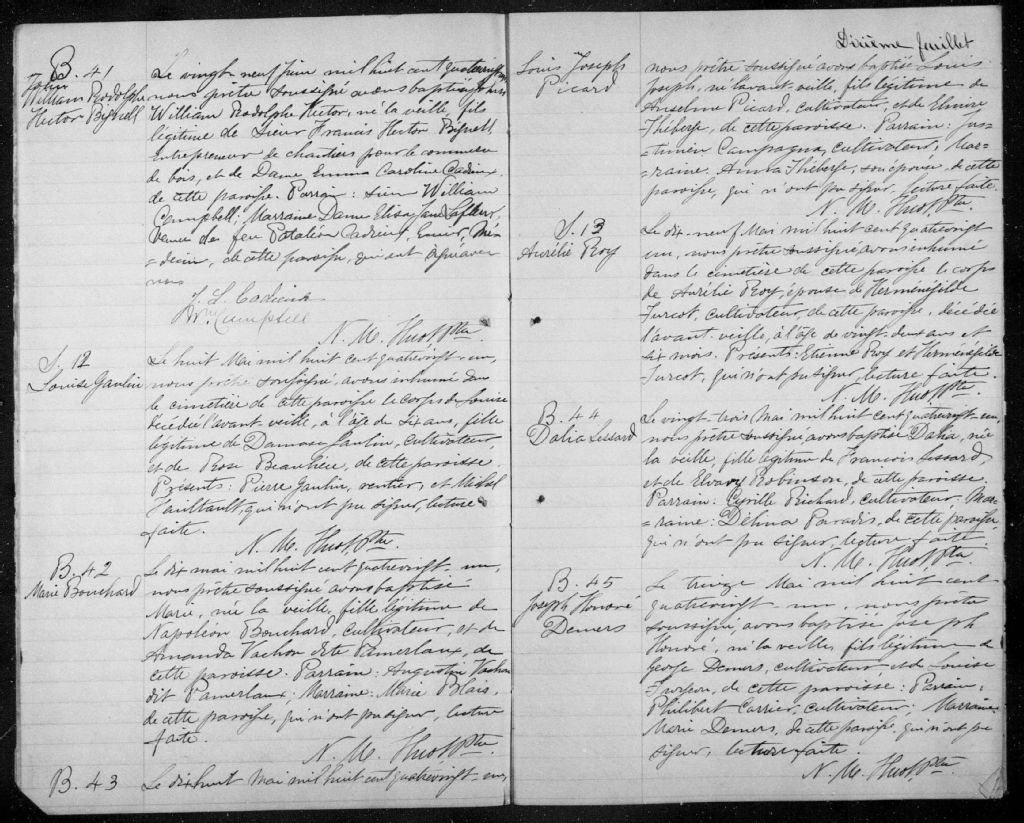 B. 41
William Rodolphe
Hector Bignell
Le vingt neuf juin mil huit cent quatrevingt un
nous prêtre soussigné avons baptisé
William Rodolphe Hector, né la veille, fils
légitime de Sieur Francis Hector Bignell
Entrepreneur de chantiers pour le commerce
de bois, et de Dame Emma Caroline Cadieux
de cette paroisse. Parrain: sieur William
Campbell; Marraine Dame Eliza Jane Lafleur,
veuve de feu Cadieux, Ecuier, Mé-
=decin, de cette paroisse, qui ont signé avec
nous
J. L. Cadieux
Wm Campbell
N. M. Huot, Ptre
S. 12
Louise Gaulin
Le huit Mai mil huit cent quatrevingt-un,
nous prêtre soussigné, avons inhumé dans
le cimetière de cette paroisse le corps de Louise
décédée l'avant veille, à l'âge de six ans, fille
légitime de Damase Gaulin, cultivateur
et de Rose Beaulieu, de cette paroisse.
Présents: Pierre Gaulin, rentier, et Michel
qui n'ont pu signer, lecture
faite.
N. M. Huot, Ptre
B. 42
Marie Bouchard
Le dix mai mil huit cent quatrevingt-un,
nous prêtre soussigné avons baptisé
Marie, née la veille, fille légitime de
Napoléon Bouchard, cultivateur, et de
Amanda Vachon dite Pamerlaux, de
cette paroisse. Parrain: Augustin Vachon
dit Pamerlaux; Marraine: Marie Blais,
de cette paroisse, qui n'ont pu signer, lecture
faite.
N. M. Huot, Ptre
B. 43
Le dix huit Mai mil huit cent quatrevingt-un,
Dixième feuillet
Louis Joseph
Picard
nous prêtre soussigné avons baptisé Louis
Joseph, né l'avant-veille, fils légitime de
Anselme Picard, cultivateur, et de Elmire
Théberge, de cette paroisse. Parrain: Jus-
=tinien Campagna, cultivateur, Mar-
=raine: Anna Théberge, son épouse, de cette
paroisse, qui n'ont pu signer, lecture faite.
N. M. Huot, Ptre
S. 13
Aurélie Roy
Le dix-neuf Mai mil huit cent quatrevingt
un, nous prêtre soussigné, avons inhumé
dans le cimetière de cette paroisse le corps
de Aurélie Roy, épouse de Herménégilde
Turcot, cultivateur, de cette paroisse, décédée
l'avant-veille, à l'âge de vingt-deux ans et
six mois. Présents: Etienne Roy et Herménégilde
Turcot, qui n'ont pu signer, lecture faite.
N. M. Huot, Ptre
B. 44
Dalia Lessard
Le vingt-trois Mai mil huit cent quatrevingt-un,
nous prêtre soussigné avons baptisé Dalia, née
la veille, fille légitime de François Lessard,
et de Robinson, de cette paroisse.
Parrain: Cyrille Richard, cultivateur, Mar-
=raine: Délina Paradis, de cette paroisse,
qui n'ont pu signer, lecture faite.
N. M. Huot, Ptre
B. 45
Joseph Honoré
Demers
Le treize Mai mil huit cent
quatrevingt-un, nous prêtre
soussigné, avons baptisé Joseph
Honoré, né la veille, fils légitime de
George Demers, cultivateur et de Louise
de cette paroisse: Parrain:
Philibert Carrier, cultivateur; Marraine
Marie Demers, de cette paroisse, qui n'ont pu
signer, lecture faite.
N. M. Huot, Ptre